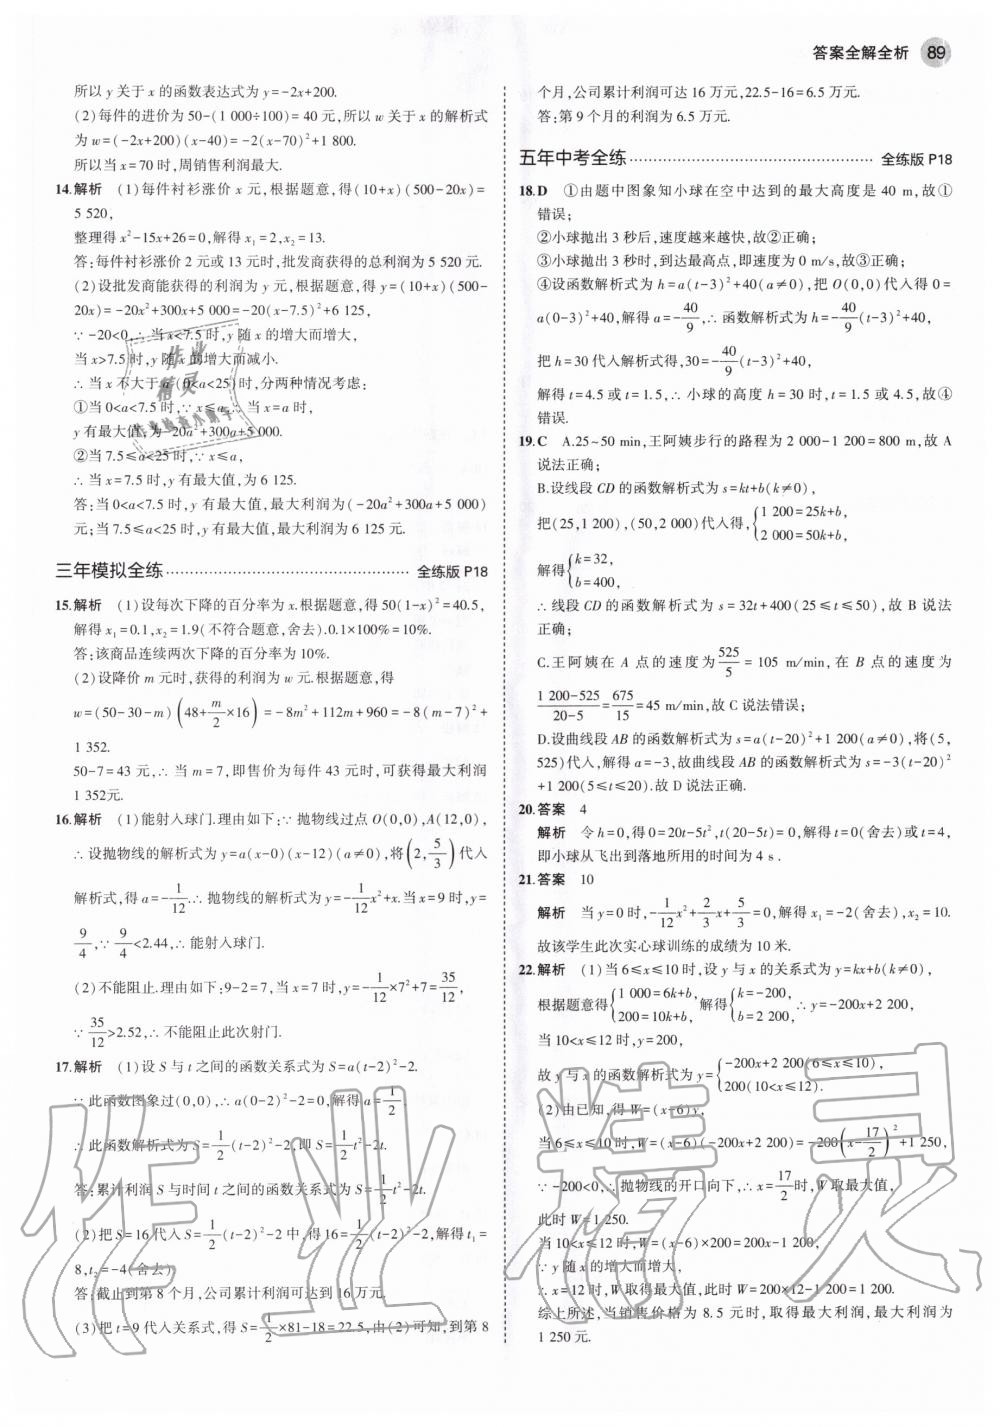 答案全解全析 89
所以 y 关于 x 的函数表达式为 y=-2x+200.
(2)每件的进价为 50-(1 000÷100)= 40 元,所以 w 关于 x 的解析式
为 w=(-2x+200)(x-40)=-2(x-70)²+1 800.
所以当 x=70 时,周销售利润最大.
14.解析 (1)每件衬衫涨价 x 元,根据题意,得(10+x)(500-20x)=
5 520,
整理得 x²-15x+26=0,解得 x₁=2,x₂=13.
答:每件衬衫涨价 2 元或 13 元时,批发商获得的总利润为 5 520 元.
(2)设批发商能获得的利润为 y 元,根据题意,得 y=(10+x)(500-
20x)=-20x²+300x+5 000=-20(x-7.5)²+6 125,
∵ -20<0,∴ 当 x<7.5 时,y 随 x 的增大而增大,
当 x>7.5 时,y 随 x 的增大而减小.
∴ 当 x 不大于 a (0<a<25)时,分两种情况考虑:
①当 0<a<7.5 时,∵ x≤a,∴ 当 x=a 时,
y 有最大值,为-20a²+300a+5 000.
②当 7.5≤a<25 时,∵ x≤a,
∴ 当 x=7.5 时,y 有最大值,为 6 125.
答:当 0<a<7.5 时,y 有最大值,最大利润为(-20a²+300a+5 000)
元;当 7.5≤a<25 时,y 有最大值,最大利润为 6 125 元.
三年模拟全练 全练版 P18
15.解析 (1)设每次下降的百分率为 x.根据题意,得 50(1-x)²=40.5,
解得 x₁=0.1,x₂=1.9(不符合题意,舍去).0.1×100%=10%.
答:该商品连续两次下降的百分率为 10%.
(2)设降价 m 元时,获得的利润为 w 元.根据题意,得
w=(50-30-m)(48+m/2×16)=-8m²+112m+960=-8(m-7)²+
1 352.
50-7=43 元,∴ 当 m=7,即售价为每件 43 元时,可获得最大利润
1 352元.
16.解析 (1)能射入球门.理由如下:∵ 抛物线过点 O(0,0),A(12,0),
∴ 设抛物线的解析式为 y=a(x-0)(x-12)(a≠0),将(2,5/3)代入
解析式,得 a=-1/12.∴ 抛物线的解析式为 y=-1/12x²+x.当 x=9 时,y=
9/4,∵ 9/4<2.44,∴ 能射入球门.
(2)不能阻止.理由如下:9-2=7,当 x=7 时,y=-1/12×7²+7=35/12,
∵ 35/12>2.52,∴ 不能阻止此次射门.
17.解析 (1)设 S 与 t 之间的函数关系式为 S=a(t-2)²-2.
∵ 此函数图象过(0,0),∴ a(0-2)²-2=0,解得 a=1/2,
∴ 此函数解析式为 S=1/2(t-2)²-2,即 S=1/2t²-2t.
答:累计利润 S 与时间 t 之间的函数关系式为 S=1/2t²-2t.
(2)把 S=16 代入 S=1/2(t-2)²-2 中,得 16=1/2(t-2)²-2,解得 t₁=
8,t₂=-4(舍去).
答:截止到第 8 个月,公司累计利润可达到 16 万元.
(3)把 t=9 代入关系式,得 S=1/2×81-18=22.5,由(2)可知,到第 8
个月,公司累计利润可达 16 万元,22.5-16=6.5 万元.
答:第 9 个月的利润为 6.5 万元.
五年中考全练 全练版 P18
18.D ①由题中图象知小球在空中达到的最大高度是 40 m,故①
错误;
②小球抛出 3 秒后,速度越来越快,故②正确;
③小球抛出 3 秒时,到达最高点,即速度为 0 m/s,故③正确;
④设函数解析式为 h=a(t-3)²+40(a≠0),把 O(0,0)代入得 0=
a(0-3)²+40,解得 a=-40/9,∴ 函数解析式为 h=-40/9(t-3)²+40,
把 h=30 代入解析式得,30=-40/9(t-3)²+40,
解得 t=4.5 或 t=1.5,∴ 小球的高度 h=30 时,t=1.5 或 4.5,故④
错误.
19.C A.25~50 min,王阿姨步行的路程为 2 000-1 200=800 m,故 A
说法正确;
B.设线段 CD 的函数解析式为 s=kt+b(k≠0),
把(25,1 200),(50,2 000)代入得,{1 200=25k+b, 2 000=50k+b,
解得{k=32, b=400,
∴ 线段 CD 的函数解析式为 s=32t+400(25≤t≤50),故 B 说法
正确;
C.王阿姨在 A 点的速度为525/5=105 m/min,在 B 点的速度为
(1 200-525)/(20-5)=675/15=45 m/min,故 C 说法错误;
D.设曲线段 AB 的函数解析式为 s=a(t-20)²+1 200(a≠0),将(5,
525)代入,解得 a=-3,故曲线段 AB 的函数解析式为 s=-3(t-20)²
+1 200(5≤t≤20).故 D 说法正确.
20.答案 4
解析 令 h=0,得 0=20t-5t²,t(20-5t)=0,解得 t=0(舍去)或 t=4,
即小球从飞出到落地所用的时间为 4 s.
21.答案 10
解析 当 y=0 时,-1/12x²+2/3x+5/3=0,解得 x₁=-2(舍去),x₂=10.
故该学生此次实心球训练的成绩为 10 米.
22.解析 (1)当 6≤x≤10 时,设 y 与 x 的关系式为 y=kx+b(k≠0),
根据题意得{1 000=6k+b, 200=10k+b, 解得{k=-200, b=2 200, ∴ y=-200x+2 200,
当 10<x≤12 时,y=200,
故 y 与 x 的函数解析式为 y={-200x+2 200(6≤x≤10), 200(10<x≤12).
(2)由已知,得 W=(x-6)y,
当 6≤x≤10 时,W=(x-6)(-200x+2 200)=-200(x-17/2)²+1 250,
∵ -200<0,∴抛物线的开口向下,∴ x=17/2时,W 取最大值,
此时 W=1 250.
当 10<x≤12 时,W=(x-6)×200=200x-1 200,
∵ y 随 x 的增大而增大,
∴ x=12 时,W 取得最大值,此时 W=200×12-1 200=1 200.
综上所述,当销售价格为 8.5 元时,取得最大利润,最大利润为
1 250 元.
作业精灵